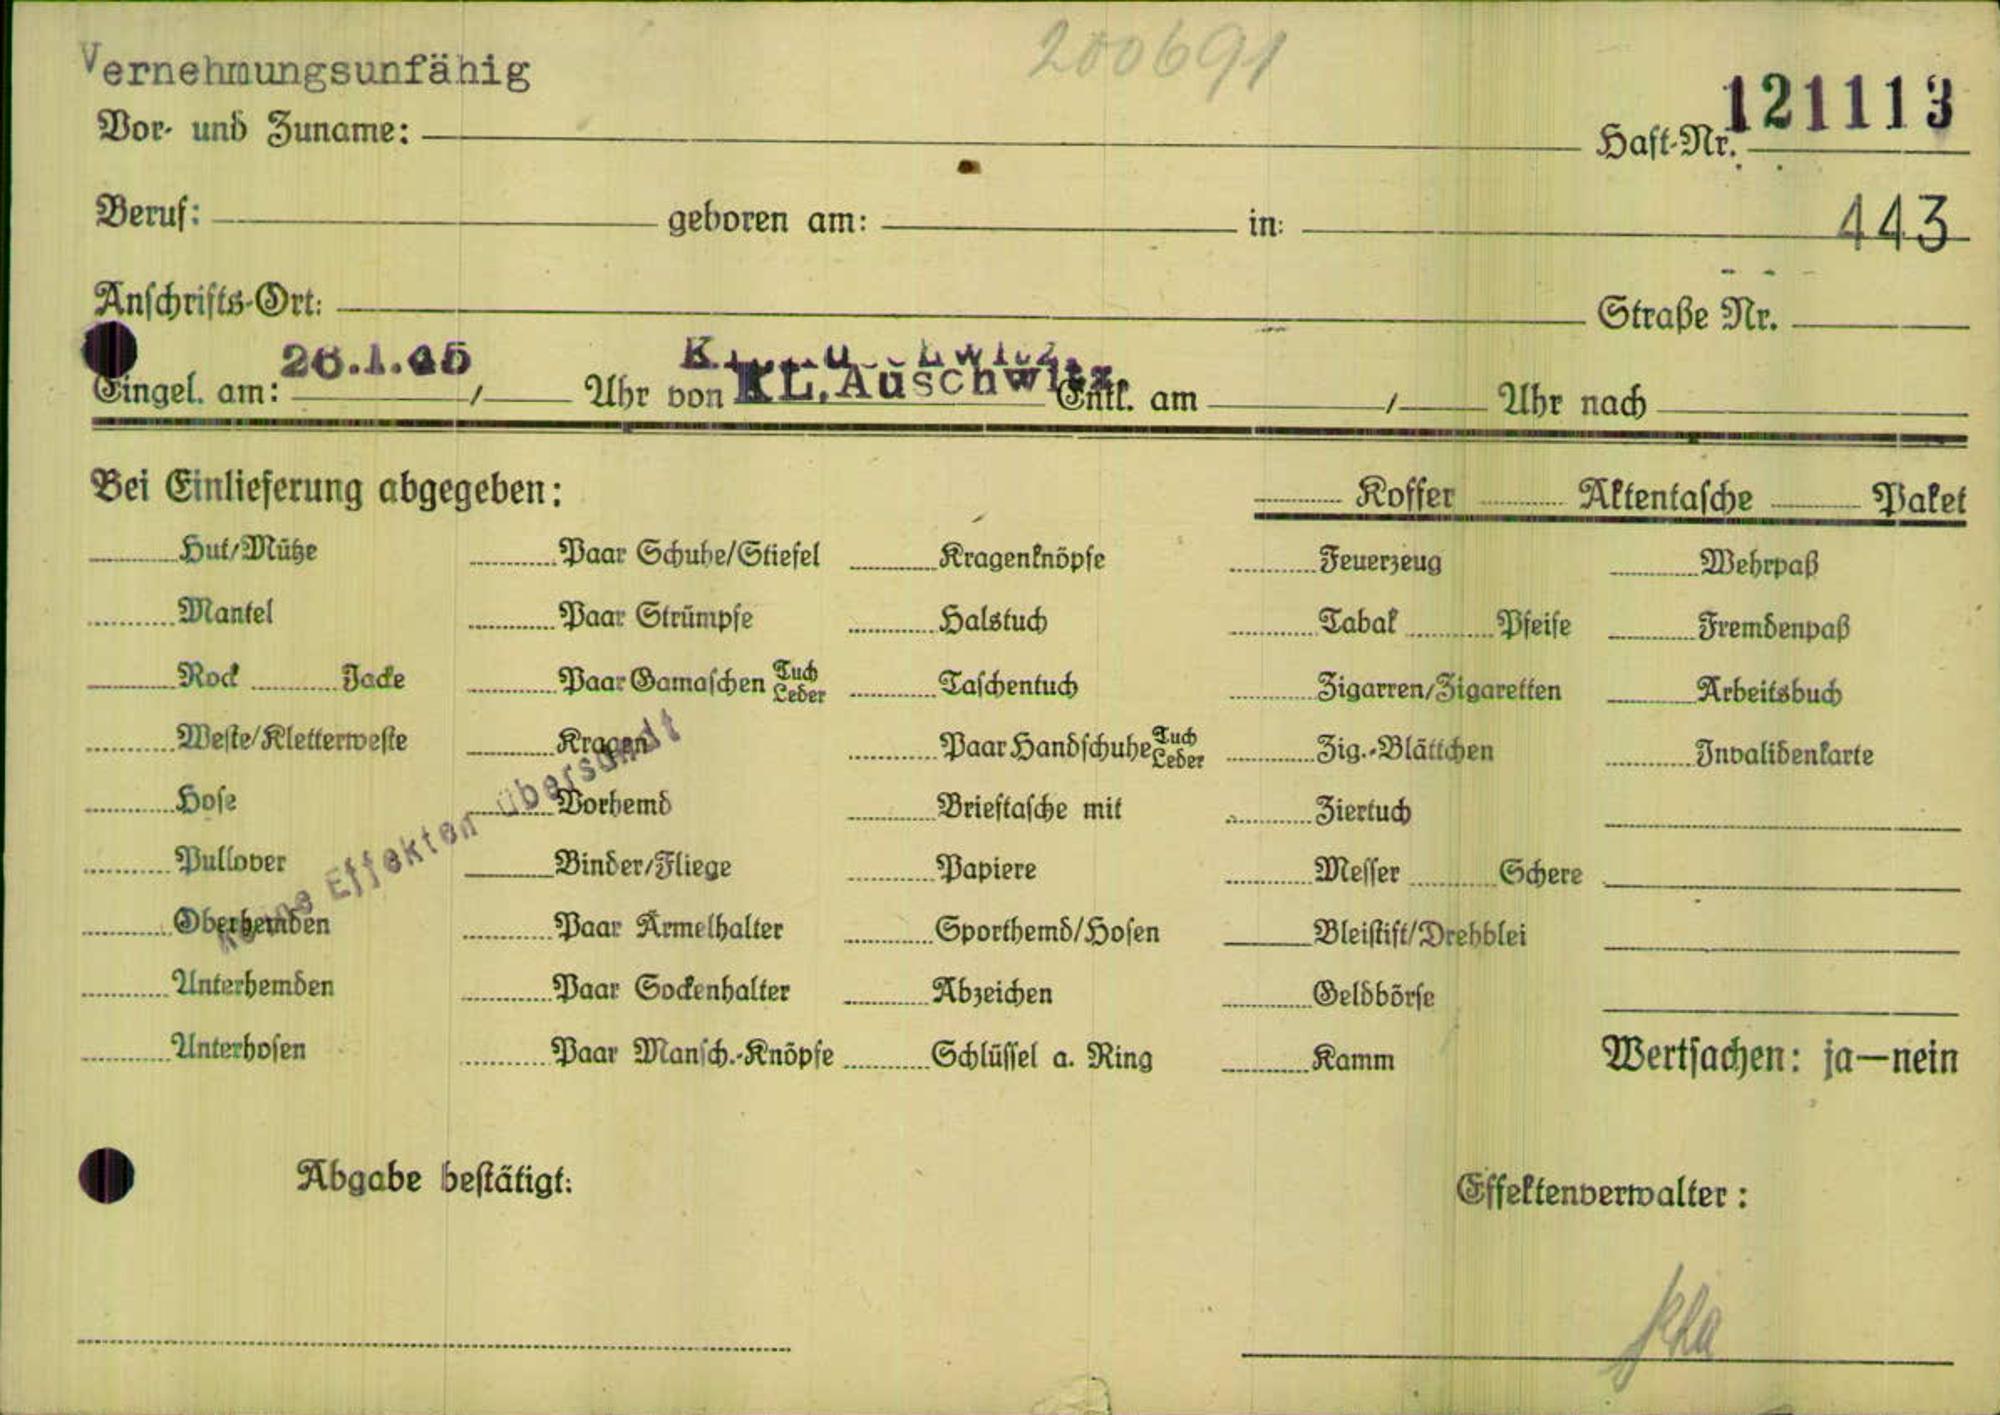 Vernehmungsunfähig
200691
Vor- und Zuname:
Haft-Nr. 121113
Beruf: geboren am: in: 443
Anschrifts-Ort: Straße Nr.
Eingel. am: 26.1.45 / Uhr von KL. Auschwitz Entl. am / Uhr nach
Bei Einlieferung abgegeben: Koffer Aktentasche Paket
Hut/Mütze Paar Schuhe/Stiefel Kragenknöpfe Feuerzeug Wehrpaß
Mantel Paar Strümpfe Halstuch Tabak Pfeife Fremdenpaß
Rock Jacke Paar Gamaschen Tuch Leder Taschentuch Zigarren/Zigaretten Arbeitsbuch
Weste/Kletterweste Kragen Paar Handschuhe Tuch Leder Zig.-Blättchen Invalidenkarte
Hose Vorhemd Brieftasche mit Ziertuch
Pullover Binder/Fliege Papiere Messer Schere
Oberhemden Paar Ärmelhalter Sporthemd/Hosen Bleistift/Drehblei
Unterhemden Paar Sockenhalter Abzeichen Geldbörse
Unterhosen Paar Mansch.-Knöpfe Schlüssel a. Ring Kamm Wertsachen: ja—nein
Keine Effekten übersandt
Abgabe bestätigt: Effektenverwalter: